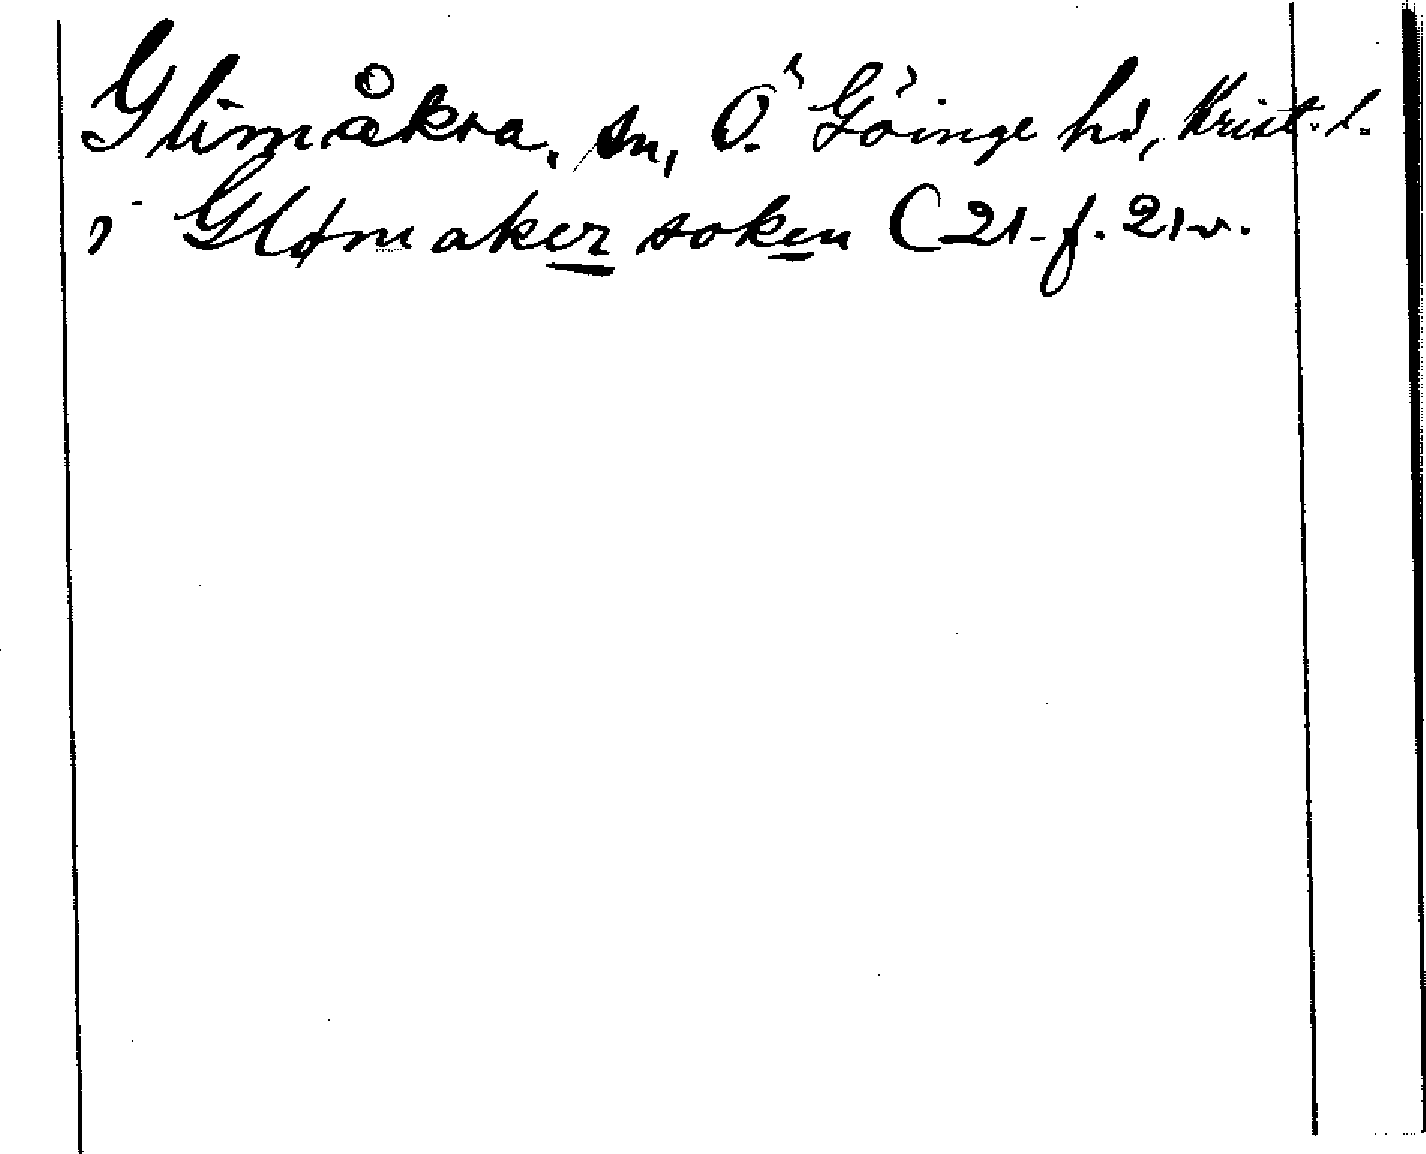 Glimåkra, sn, Ö. Göinge hd, Krist. l.
i Gløm aker soken (21. f. 21 v.